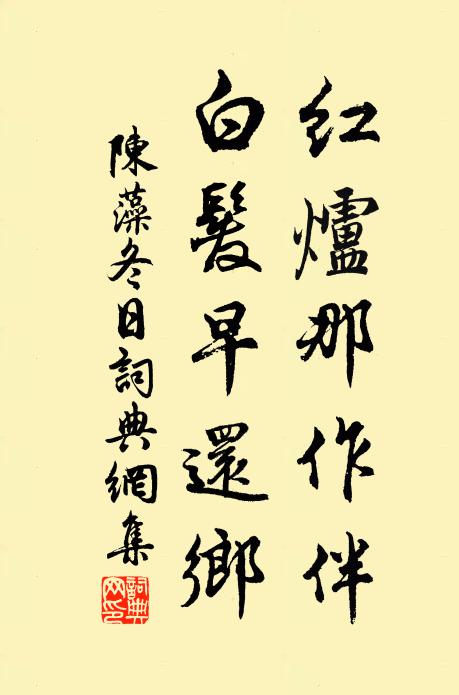 紅爐那作伴
白髮早還鄉
陳藻冬日詞典網集
詞典網印